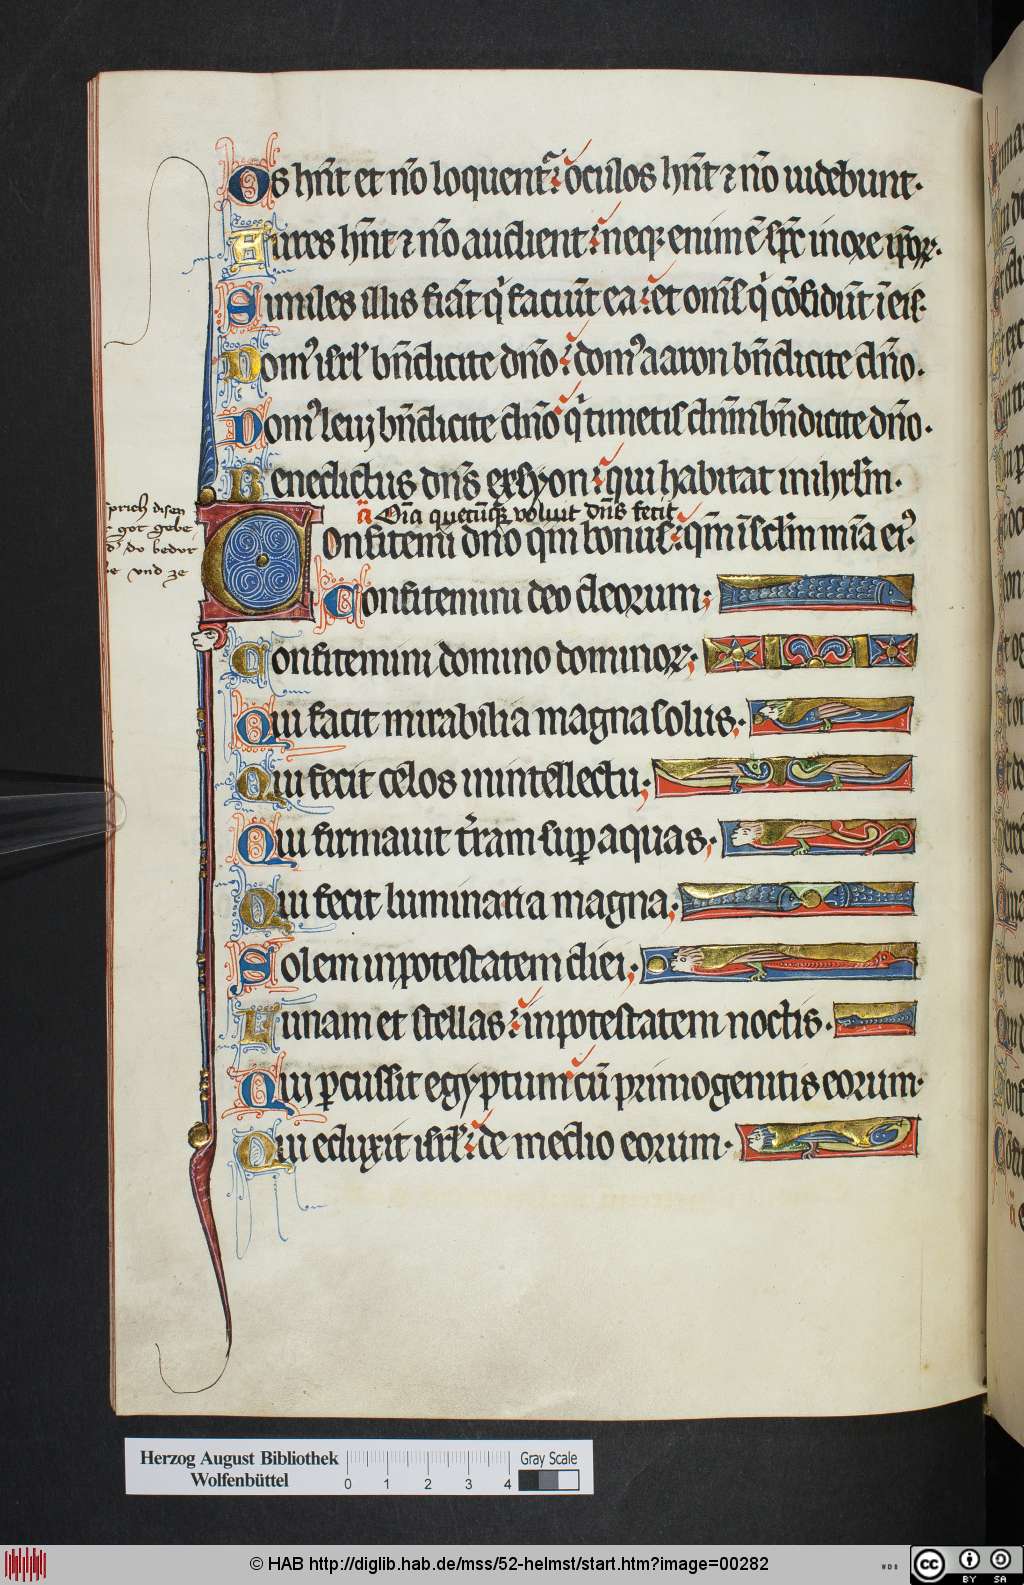 Os hn̄t et nō loquent᷑ oculos hn̄t ⁊ nō uidebunt·
Aures hn̄t ⁊ nō audient neq; enim ē sp̄c in ore ip̄oꝝ·
Similes illis fiāt q̇ faciūt ea et oms̄ q̇ cōfidūt ī eis·
Domꝰ isrl̄ bn̄dicite dn̄o domꝰ aaron bn̄dicite dn̄o·
Domꝰ leuy bn̄dicite dn̄o q̇ timetis dnm̄ bn̄dicite dn̄o·
Benedictus dn̄s ex syon qui habitat in ihrl̄m·
ā Oīa quecūqꝫ voluit dn̄s fecit
Confitemī dn̄o qm̄ bonus qm̄ ī sclm̄ mīa eiꝰ·
Confitemini deo deorum
Confitemini domino dominoꝝ
Qui facit mirabilia magna solus·
Qui fecit celos in intellectu
Qui firmauit t̄ram sup aquas
Qui fecit luminaria magna
Solem in potestatem diei
Lunam et stellas in potestatem noctis·
Qui ꝑcussit egyptum cū primogenitis eorum·
Qui eduxit isrl̄ de medio eorum·
sprich disen
got gebe
do bedut
vnd ze
Herzog August Bibliothek
Wolfenbüttel
0 1 2 3 4
Gray Scale
© HAB http://diglib.hab.de/mss/52-helmst/start.htm?image=00282
WDB
cc BY SA